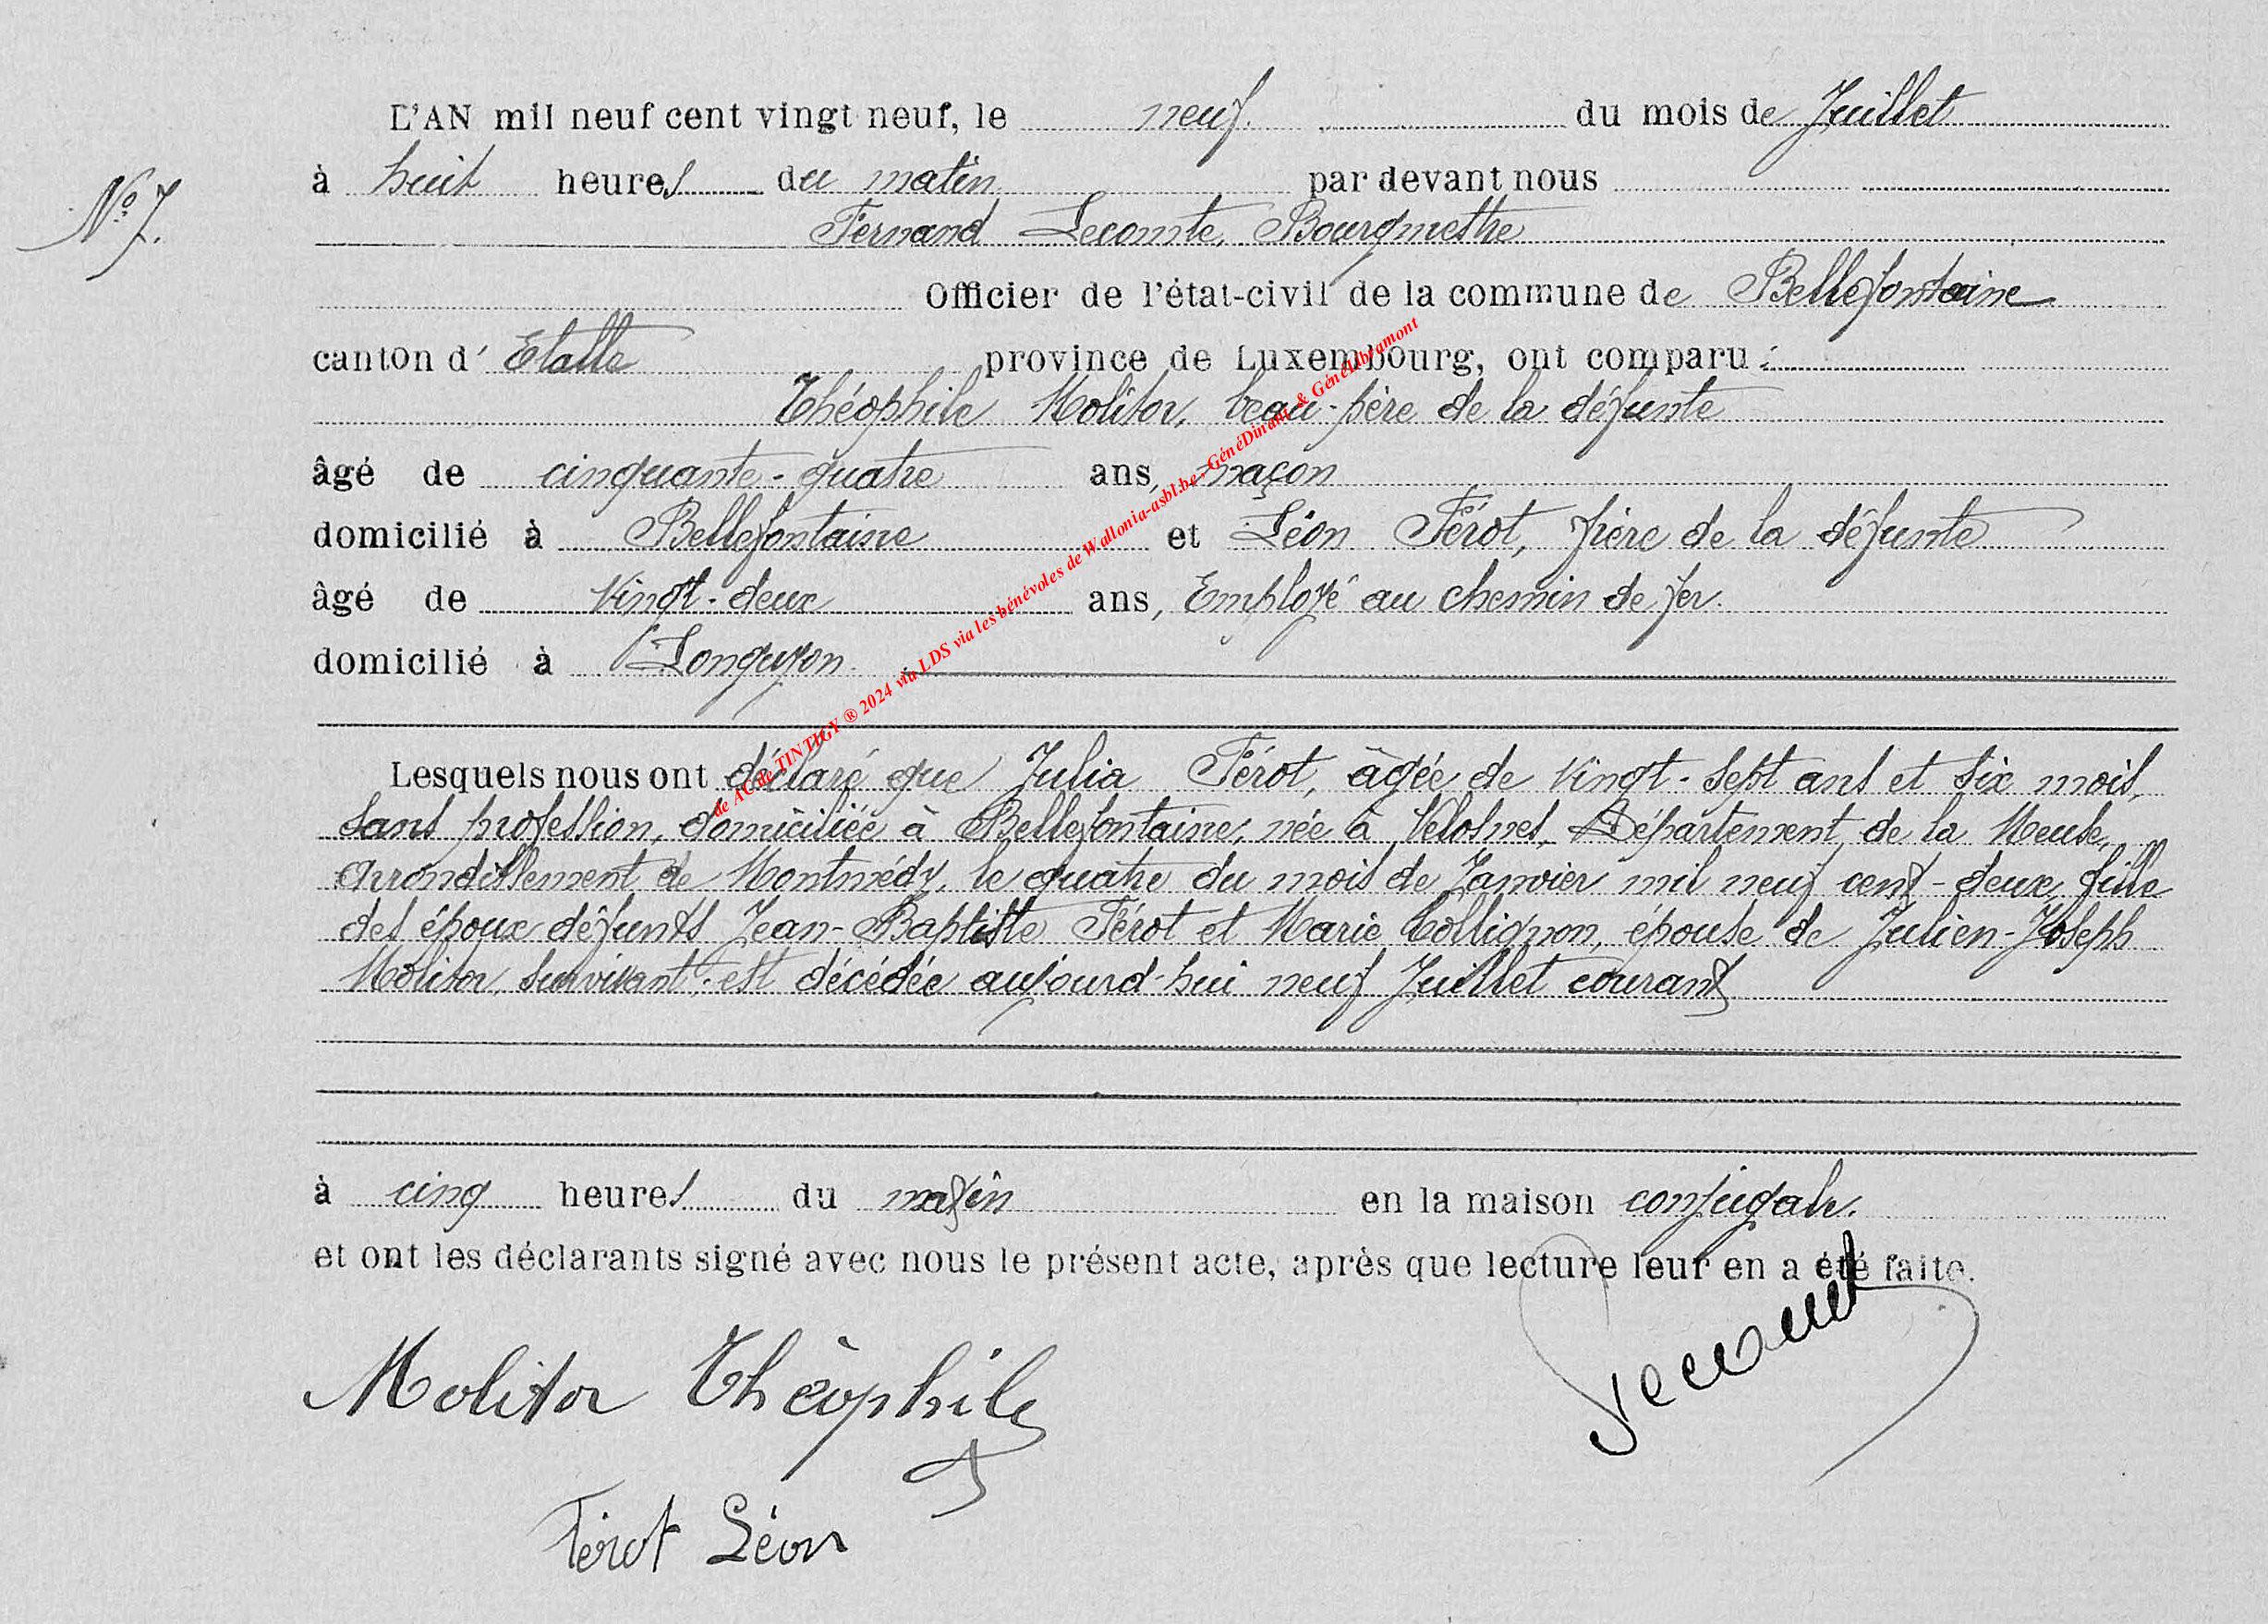 L'AN mil neuf cent vingt neuf, le neuf du mois de Juillet
N° 7. à huit heures du matin par devant nous
Fernand Lecomte, Bourgmestre
Officier de l'état-civil de la commune de Bellefontaine
canton d' Etalle province de Luxembourg, ont comparu :
Théophile Molitor, beau-père de la défunte
âgé de cinquante-quatre ans, maçon
domicilié à Bellefontaine et Léon Férot, frère de la défunte
âgé de vingt-deux ans, Employé au chemin de fer.
domicilié à Longuyon.
Lesquels nous ont déclaré que Julia Férot, âgée de vingt-sept ans et six mois,
sans profession, domiciliée à Bellefontaine, née à Velosnes, Département de la Meuse,
Arrondissement de Montmédy, le quatre du mois de Janvier mil neuf cent-deux, fille
des époux défunts Jean-Baptiste Férot et Marie Collignon, épouse de Julien-Joseph
Molitor, survivant, est décédée aujourd'hui neuf Juillet courant
à cinq heures du matin en la maison conjugale.
et ont les déclarants signé avec nous le présent acte, après que lecture leur en a été faite.
Molitor Théophile
Lecomte
Férot Léon
de AC de TINTIGY ® 2024 via LDS via les bénévoles de Wallonia-asbl.be - GénéDinant & GénéLibramont